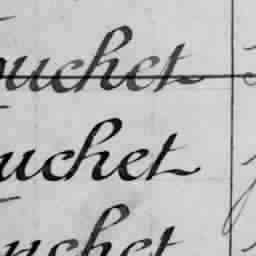 ouchet
uchet
ouchet